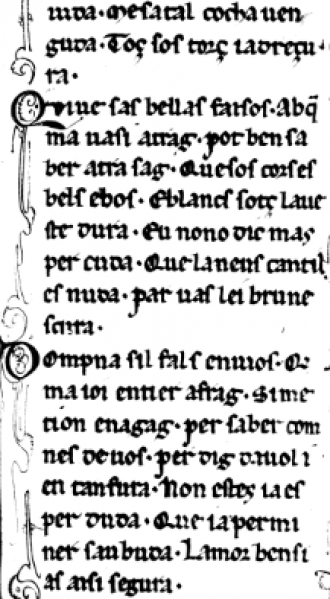 nuda. Mesatal cocha uen
guda. Toç sos torç iadreçu
ra.
Qiue sas bellas faisos. Abq̃
ma uasi atrag. pot ben sa
ber atra sag. Quesos corses
bels ebos. Eblancs sotç laue
ste dura. Eu nono dic mas
per cuda. Que laneus cantil
es nuda. par uas lei brune
scura.
Dompna sil fals enuios. Q
ma ioi entier afrag. Si me
tion enagag. per saber com
nes deuos. per dig dauol i
en tanfuta. Non esteç ia es
per duda. Que ia per mi
ner saubuda. Lamor ben si
as aisi segura.